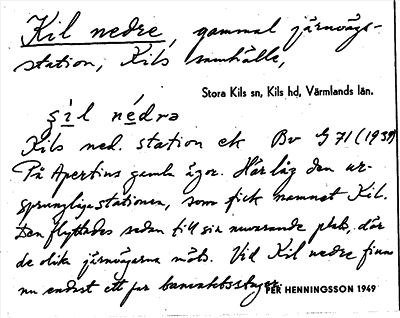 Kil nedre, gammal järnvägs-
station, Kils samhälle,
Stora Kils sn, Kils hd, Värmlands län.
şìl nédrə
Kils ned. station ek Bv G 71 (1939)
På Apertins gamla ägor. Här låg den ur-
sprungliga stationen, som fick namnet Kil.
Den flyttades sedan till sin nuvarande plats, där
de olika järnvägarna möts. Vid Kil nedre finns
nu endast ett par banvaktsstugor.
PER HENNINGSSON 1949